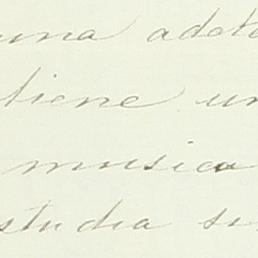 una
tiene un
musica
studia su